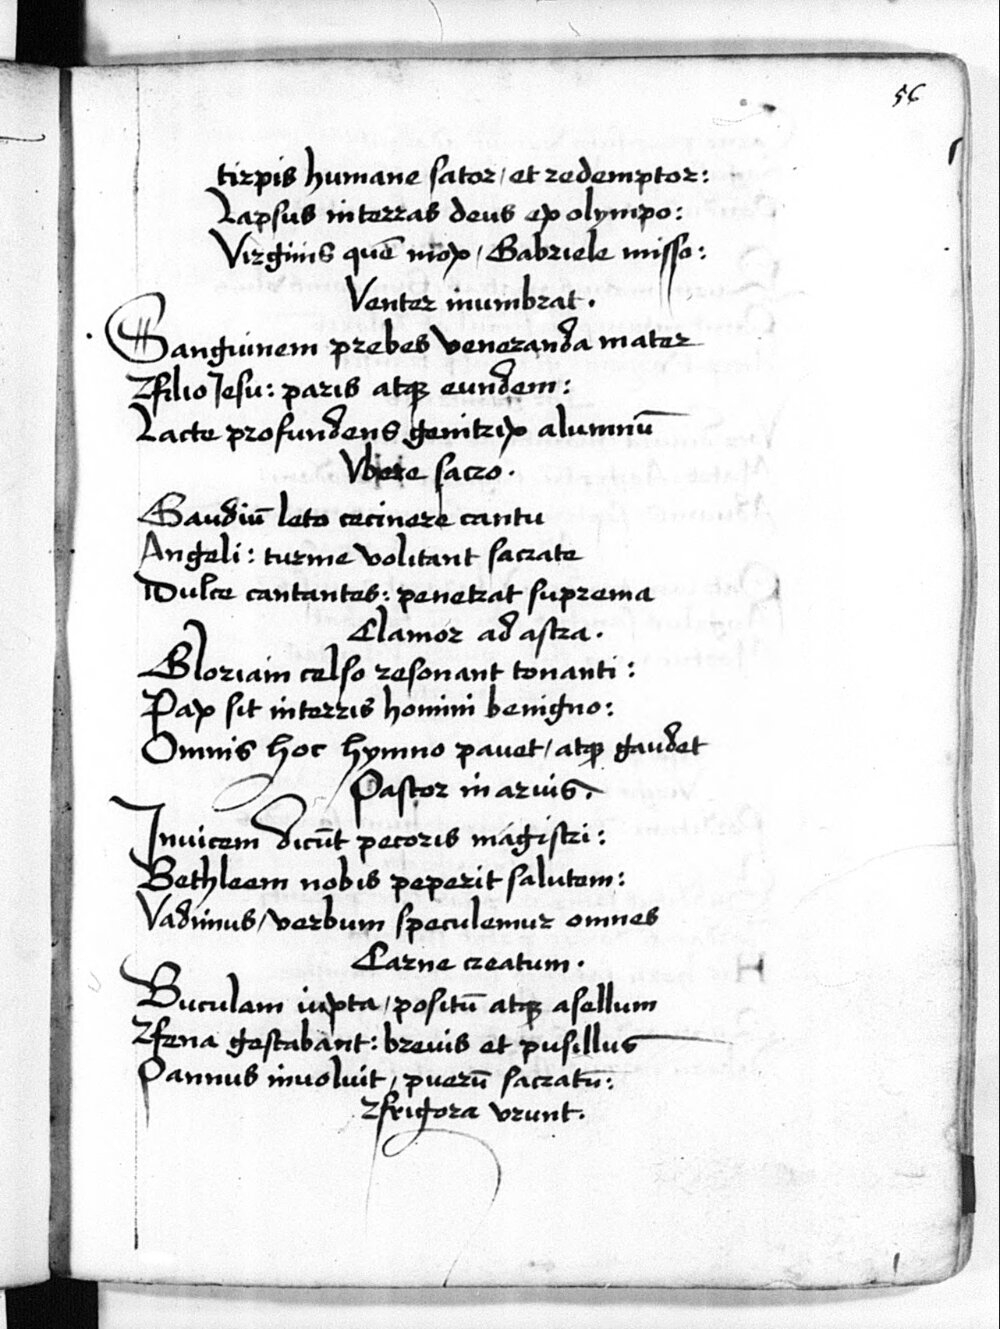 56
tirpis humane sator / et redemptor:
Lapsus in terras deus ex olympo:
Virginis quē mox / Gabriele misso:
Venter inumbrat.
Sanguinem prebes veneranda mater
Filio Jesu: paris atqꝫ eundem:
Lacte profundens genitrix alumnū
Vbere sacro.
Gaudiū leto cecinere cantu
Angeli: turme volitant sacrate
Dulce cantantes: penetrat suprema
Clamor ad astra.
Gloriam celso resonant tonanti:
Pax sit in terris homini benigno:
Omnis hoc hymno pauet / atqꝫ gaudet
Pastor in aruis.
Inuicem dicūt pecoris magistri:
Bethleem nobis peperit salutem:
Vadimus / verbum speculemur omnes
Carne creatum.
Buculam iuxta / positū atqꝫ asellum
Fena gestabant: breuis et pusillus
Pannus inuoluit / puerū sacratū:
Frigora vrunt.